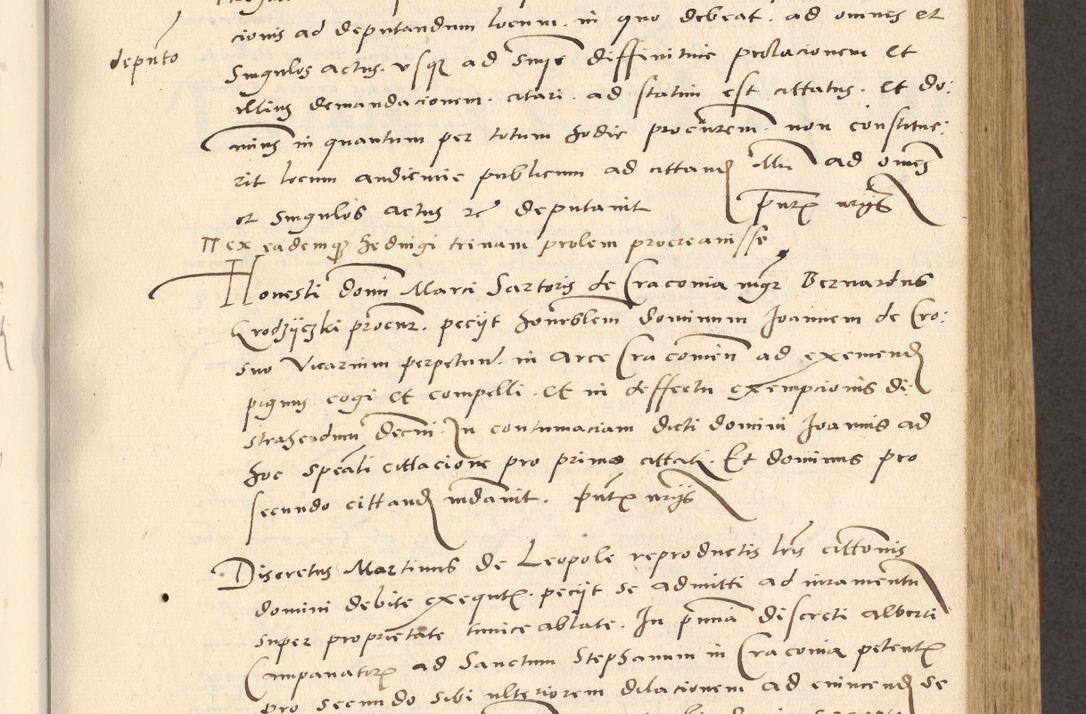 cionis ad deputandum locum in quo debeat ad omnes et
deputo
singulos actus usque ad snie diffinitive prolacionem et
illius demandacionem citari ad statim est cittatus. Et do:
minus in quantum per totum hodie procurem non constitue:
rit locum audiencie publicum ad cittand illu ad omes
et singulos actus rc deputavit pntx nrijs
ex eademq hedvigi trinam prolem procreavisse
Honesti domi Marci Sartoris de Cracovia mgr Bernardus
Grodzyczki procur. pecijt honrablem dominum Joannem de Cro:
sno vicarium perpetuu in Arce Cracovien ad exemend
pignus cogi et compelli et in deffectu exempcionis di:
strahendum decrni. In contumaciam dicti domini Joannis ad
hoc speali cittacione pro primo cittati. Et dominus pro
secundo cittand mdavit. pntx nrijs
Discretus Martinus de Leopole reproductis lris cittonis
domini debite exequtx pecijt se admitti ad iuramentu
super proprietate tunice ablate. In pntia discreti Alberti
Campanatorx ad Sanctum Stephanum in Cracovia petentx
pro secundo sibi ulteriorem dilacionem ad evincend se